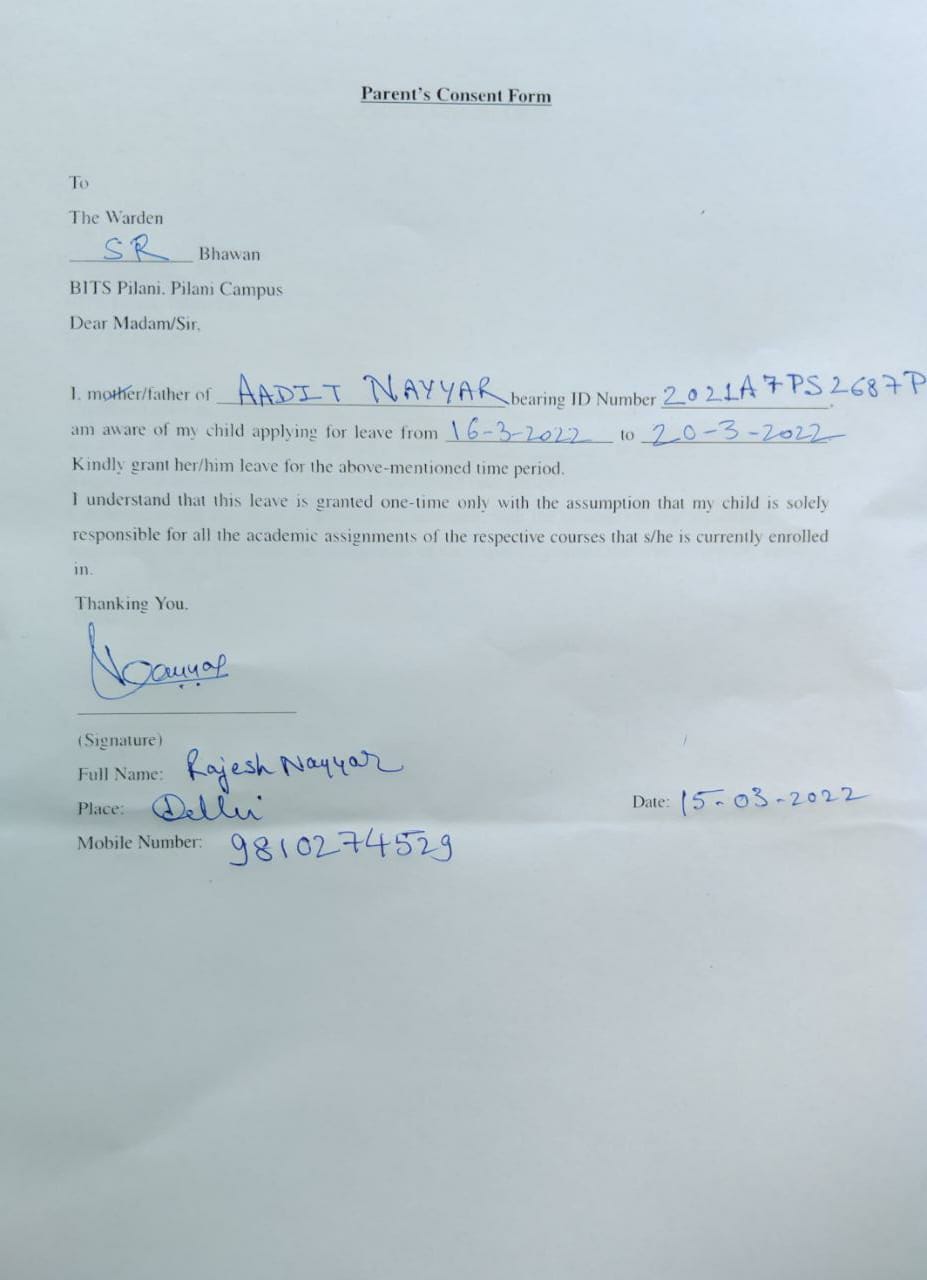 Parent's Consent Form
To
The Warden
SR Bhawan
BITS Pilani. Pilani Campus
Dear Madam/Sir,
I, mother/father of AADIT NAYYAR bearing ID Number 2021A7PS2687P,
am aware of my child applying for leave from 16-3-2022 to 20-3-2022
Kindly grant her/him leave for the above-mentioned time period.
I understand that this leave is granted one-time only with the assumption that my child is solely
responsible for all the academic assignments of the respective courses that s/he is currently enrolled
in.
Thanking You.
Nayyar
(Signature)
Full Name: Rajesh Nayyar
Place: Delhi
Date: 15-03-2022
Mobile Number: 9810274529